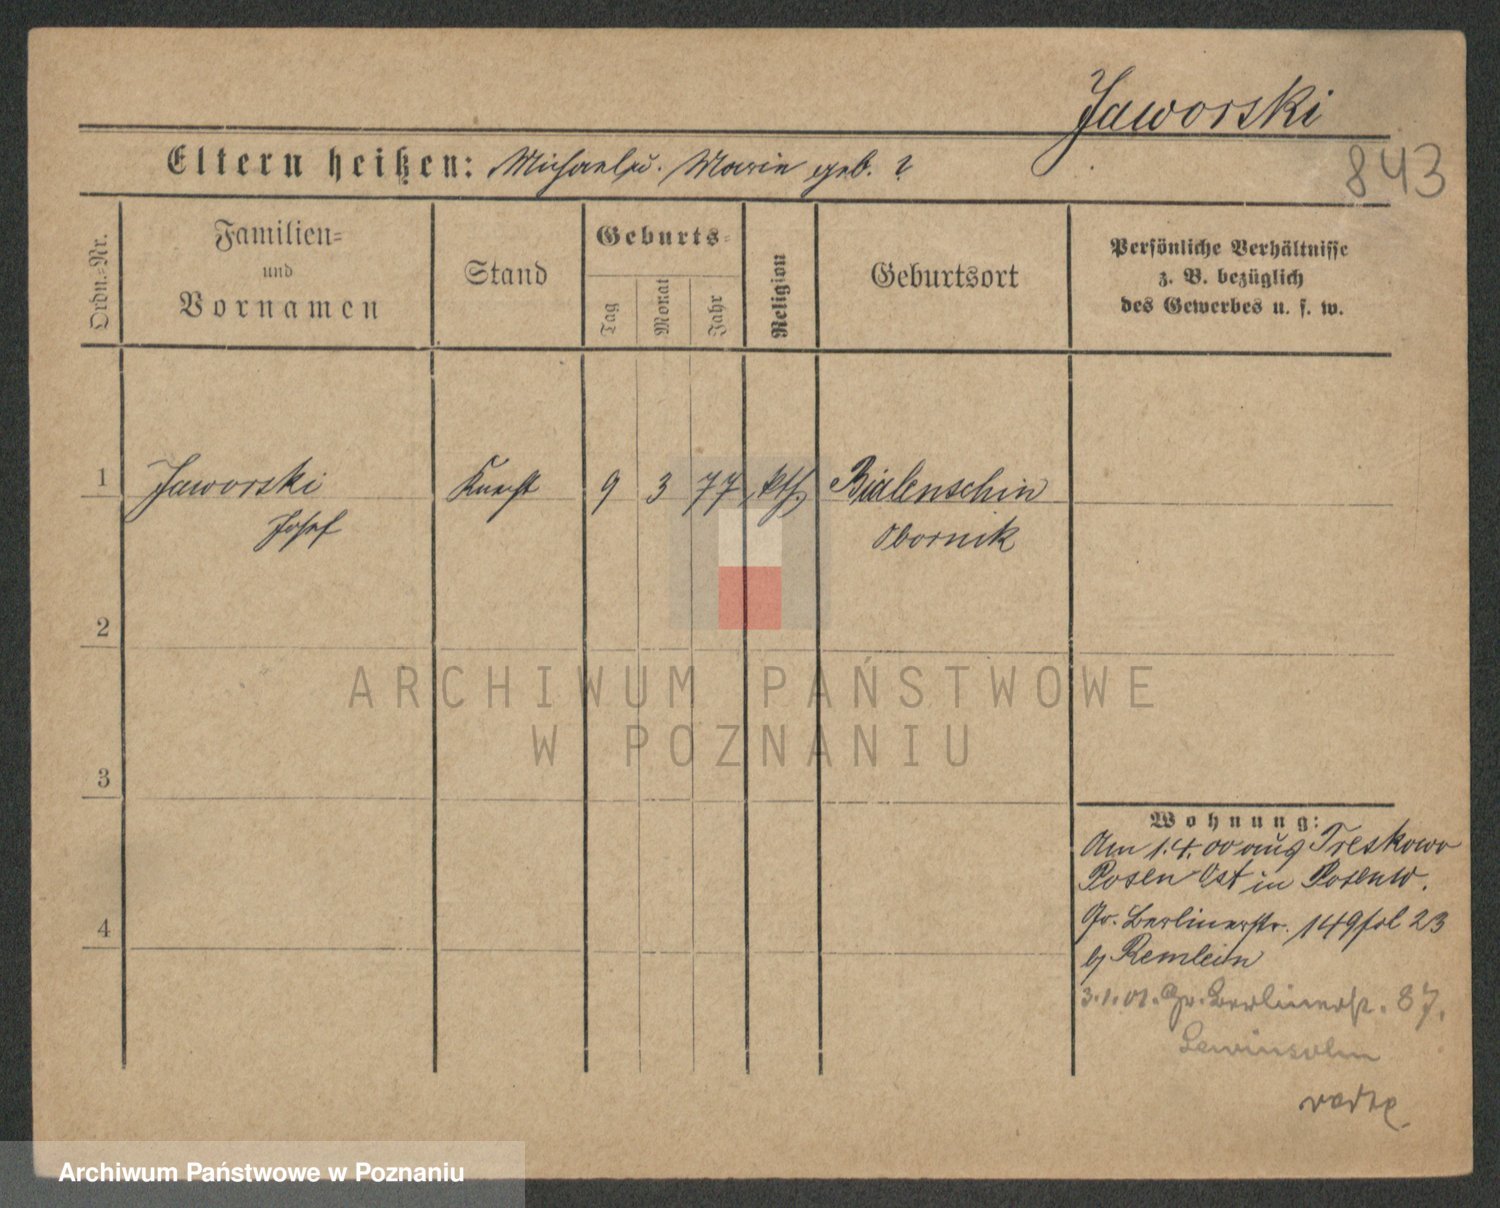 Jaworski
843
Eltern heißen: Michael u. Marie geb. ?
Ordn.-Nr.
Familien-
und
Vornamen
Stand
Geburts-
Tag
Monat
Jahr
Religion
Geburtsort
Persönliche Verhältnisse
z. B. bezüglich
des Gewerbes u. s. w.
1 Jaworski Knecht 9 3 77 kth. Bialenschin
Josef Obornik
2
3
4
ARCHIWUM PAŃSTWOWE
W POZNANIU
Wohnung:
Am 1.4.00 aus Treskowo
Posen Ost in Posen W.
Gr. Berlinerstr. 149 fol 23
bj Remlein
3.1.01. Gr. Berlinerstr. 87.
Lewinsohn
Archiwum Państwowe w Poznaniu